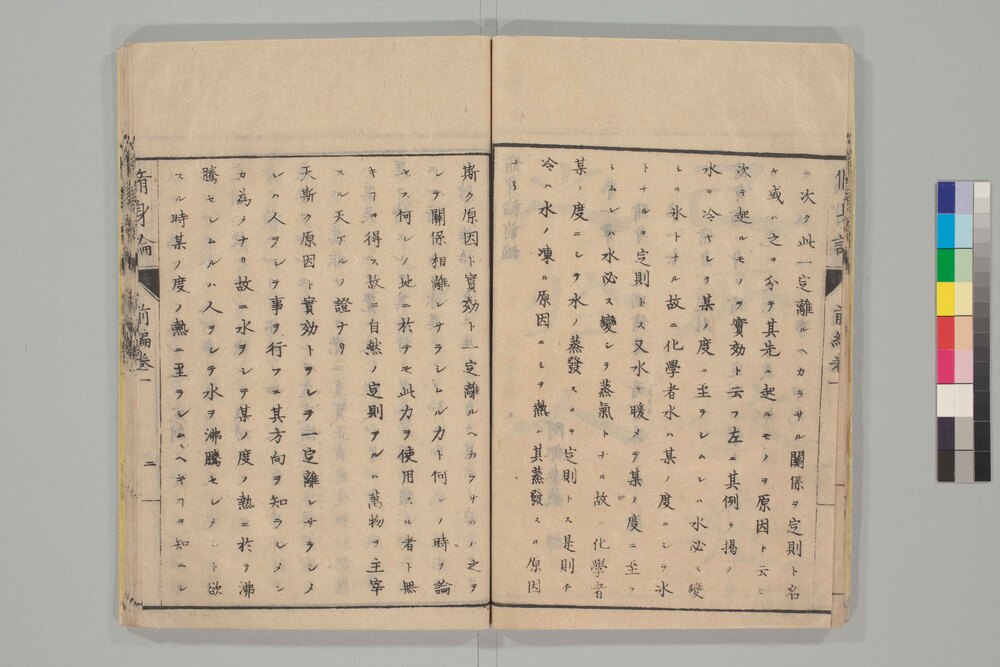 ニ次ク此一定離ルヘカラサル關係ヲ定則ト名
ケ或ハ之ヲ分テ其先ニ起ルモノヲ原因ト云ヒ
次テ起ルモノヲ實効ト云フ左ニ其例ヲ揭ク
水ヲ冷ヤシテ某ノ度ニ至ラシムレハ水必ス變
シテ氷トナル故ニ化學者水ハ某ノ度ニシテ氷
トナルヲ定則トス又水ヲ暖メテ某ノ度ニ至ラ
シムレハ水必ス變シテ蒸氣トナル故ニ化學者
某ノ度ニシテ水ノ蒸發スルヲ定則トス是則チ
冷ハ水ノ凍ル原因ニシテ熱ハ其蒸發スル原因
ナリ
脩身論 前編卷一
斯ク原因ト實効ト一定離ルヘカラサルハ之ヲ
シテ關係相離レサラシムル力ト何レノ時ヲ論
セス何レノ地ニ於テモ此力ヲ使用スル者ト無
キヲ得ス故ニ自然ノ定則アルハ萬物ヲ主宰
スル天アルノ證ナリ
天斯ク原因ト實効トヲシテ一定離レサラシメ
シハ人ヲシテ事ヲ行フニ其方向ヲ知ラシメン
カ為メナリ故ニ水ヲシテ某ノ度ノ熱ニ於テ沸
騰セシムルハ人ヲシテ水ヲ沸騰セシメント欲
スル時某ノ度ノ熱ニ至ラシムヘキヲ知ラシ
脩身論 前編卷一 二